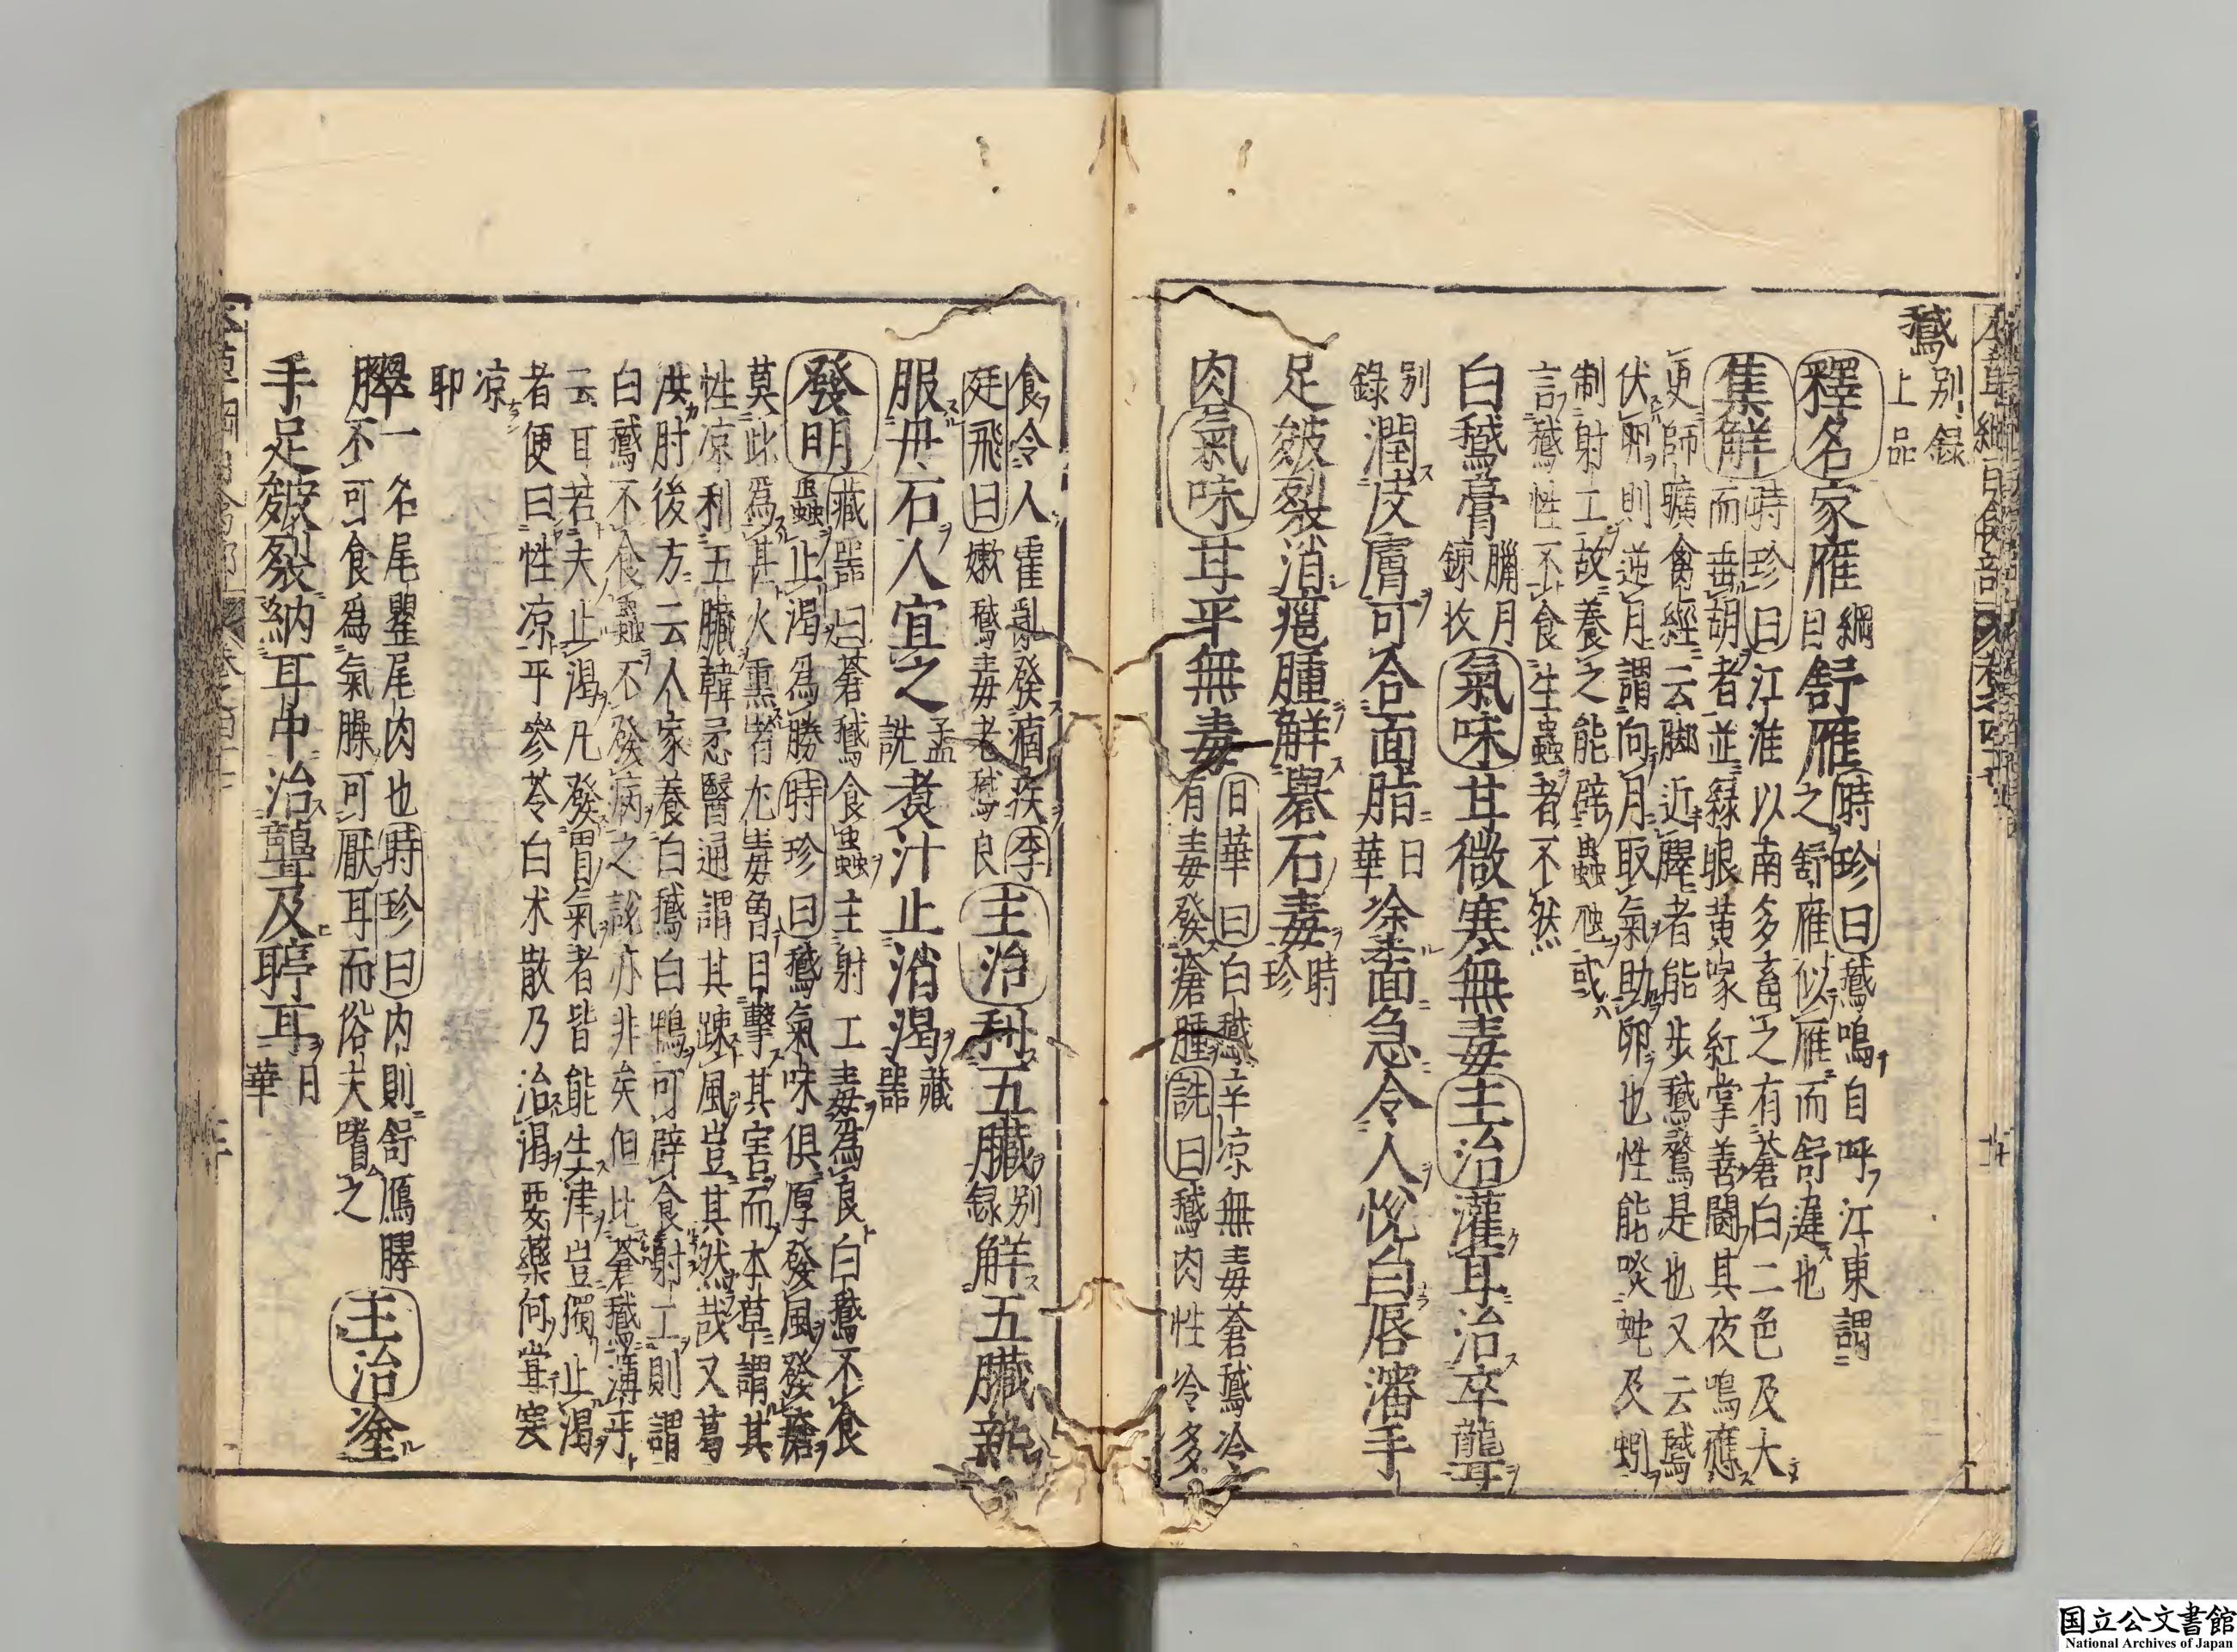 鵞別録上品
釋名家雁綱目舒雁時珍曰鵞鳴自呼江東謂之舒雁似雁而舒遲也
集解時珍曰江淮以南多畜之有蒼白二色及大而垂胡者並緑眼黄喙紅掌善鬪其夜鳴應
更師曠禽經云脚近臎者能歩鵞鶩是也又云鵞
伏卵則逆月謂向月取氣助卵也性能啖蛇及蚓
制射工故養之能辟蟲虺或
言鵞性不食生蟲者不然
白鵞膏臘月錬收氣味甘微寒無毒主治灌耳治卒聾
別錄潤皮膚可合面脂日華塗面急令人悅白唇瀋手
足皴裂消癰腫解礜石毒時珍
肉氣味甘平無毒日華曰白鵞辛凉無毒蒼鵞冷有毒發瘡腫詵曰鵞肉性冷多
食令人霍亂發痼疾李廷飛曰嫩鵞毒老鵞良主治利五臟別録解五臟熱
服丹石人宜之孟詵煮汁止消渴藏器
發明藏器曰蒼鵞食蟲主射工毒爲良白鵞不食蟲止渴爲勝時珍曰鵞氣味俱厚發風發瘡
莫此爲甚火熏者尤毒魯目擊其害而本草謂其
性凉利五臟韓𢗅醫通謂其疎風豈其然哉又葛
洪肘後方云人家養白鵞白鴨可辟食射工則謂
白鵞不食蟲不發病之説亦非矣但比蒼鵞薄乎
云耳若夫止渴凡發胃氣者皆能生津豈獨止渴
者便曰性凉乎參苓白朮散乃治渴要藥何嘗寒
凉
耶
臎一名尾罌尾肉也時珍曰内則舒鴈臎不可食爲氣臊可厭耳而俗夫嗜之主治塗
手足皴裂納耳中治聾及聤耳日華
国立公文書館
National Archives of Japan